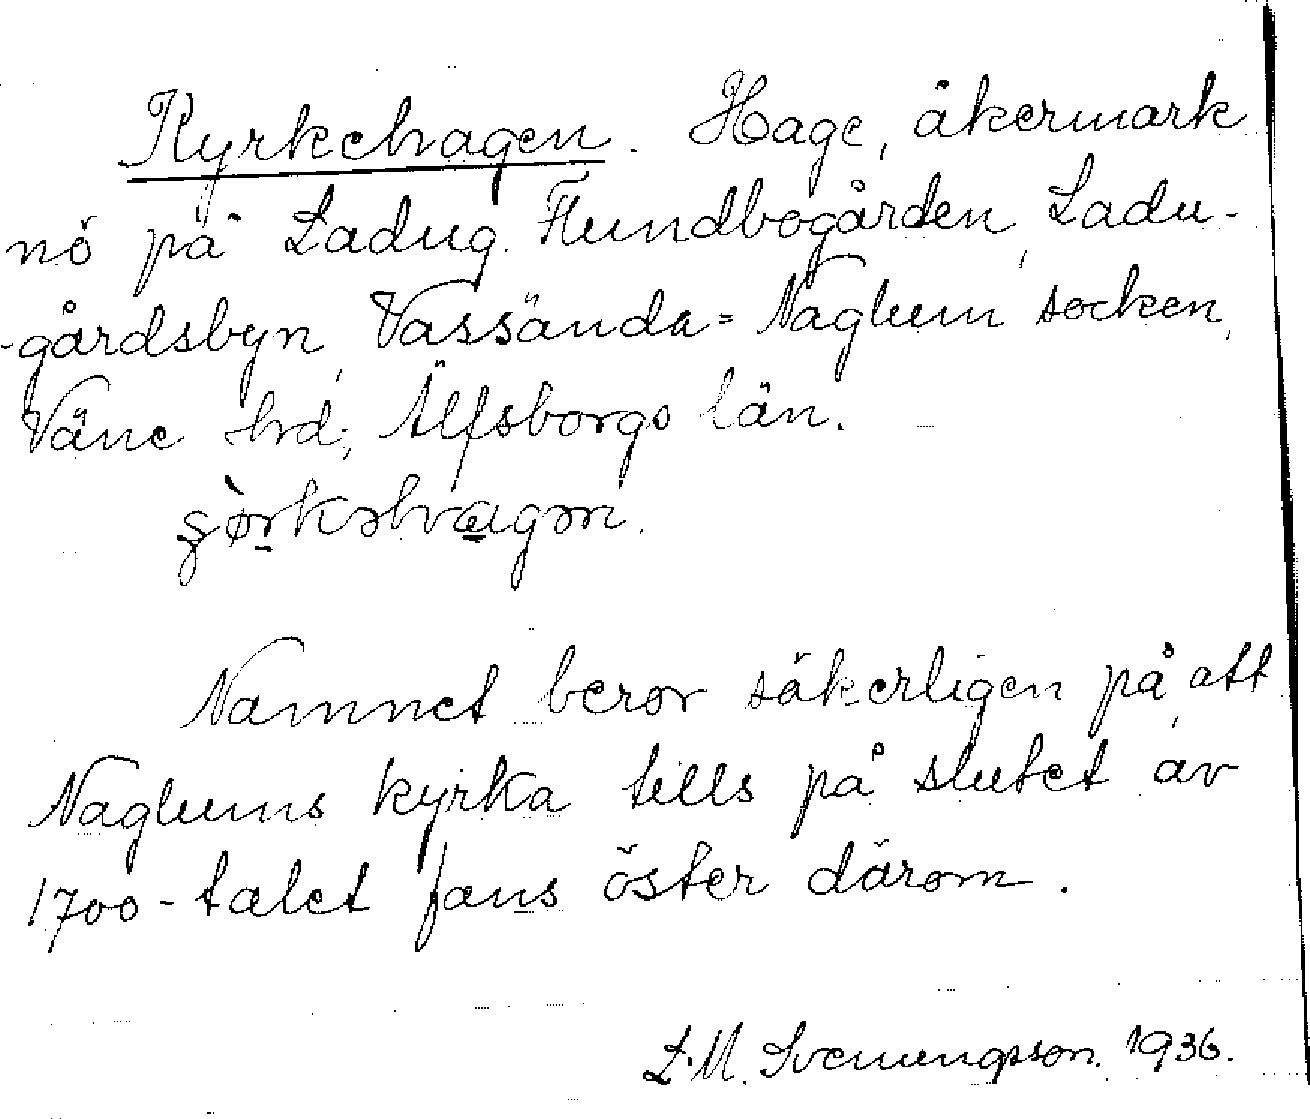 Kyrkehagen. Hage, åkermark
nö på Ladug. Hundbogården, Ladu-
-gårdsbyn, Vassända=Naglum socken,
Väne hrd, Älfsborgs län.
Namnet beror säkerligen på, att
Naglums kyrka tills på slutet av
1700-talet fans öster därom.
L.M. Svenungsson. 1936.